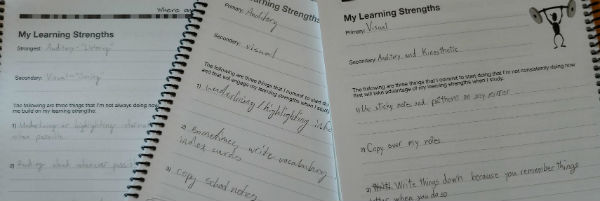 Where a
My Learning Strengths
Strongest: Auditory - "Listening"
Secondary: Visual - "Seeing"
The following are three things that I'm not always doing now
me build on my learning strengths.
1) Underlining or highlighting
when possible
2) Reading aloud whenever possib
Learning Strengths
Primary: Auditory
Secondary: visual
The following are three things that I commit to start do
and that will engage my learning strengths when I study.
1) Underlining/highlighting
2) sometimes, write vocabulary
index cards
3) copy school notes
My Learning Strengths
Primary: Visual
Secondary: Auditory and Kinesthetic
The following are three things that I commit to start doing that I'm not consistently doing now
that will take advantage of my learning strengths when I study.
1) Use sticky notes and put them on my mirror
2) Copy over my notes
3) Write things down because you remember things
when you do so